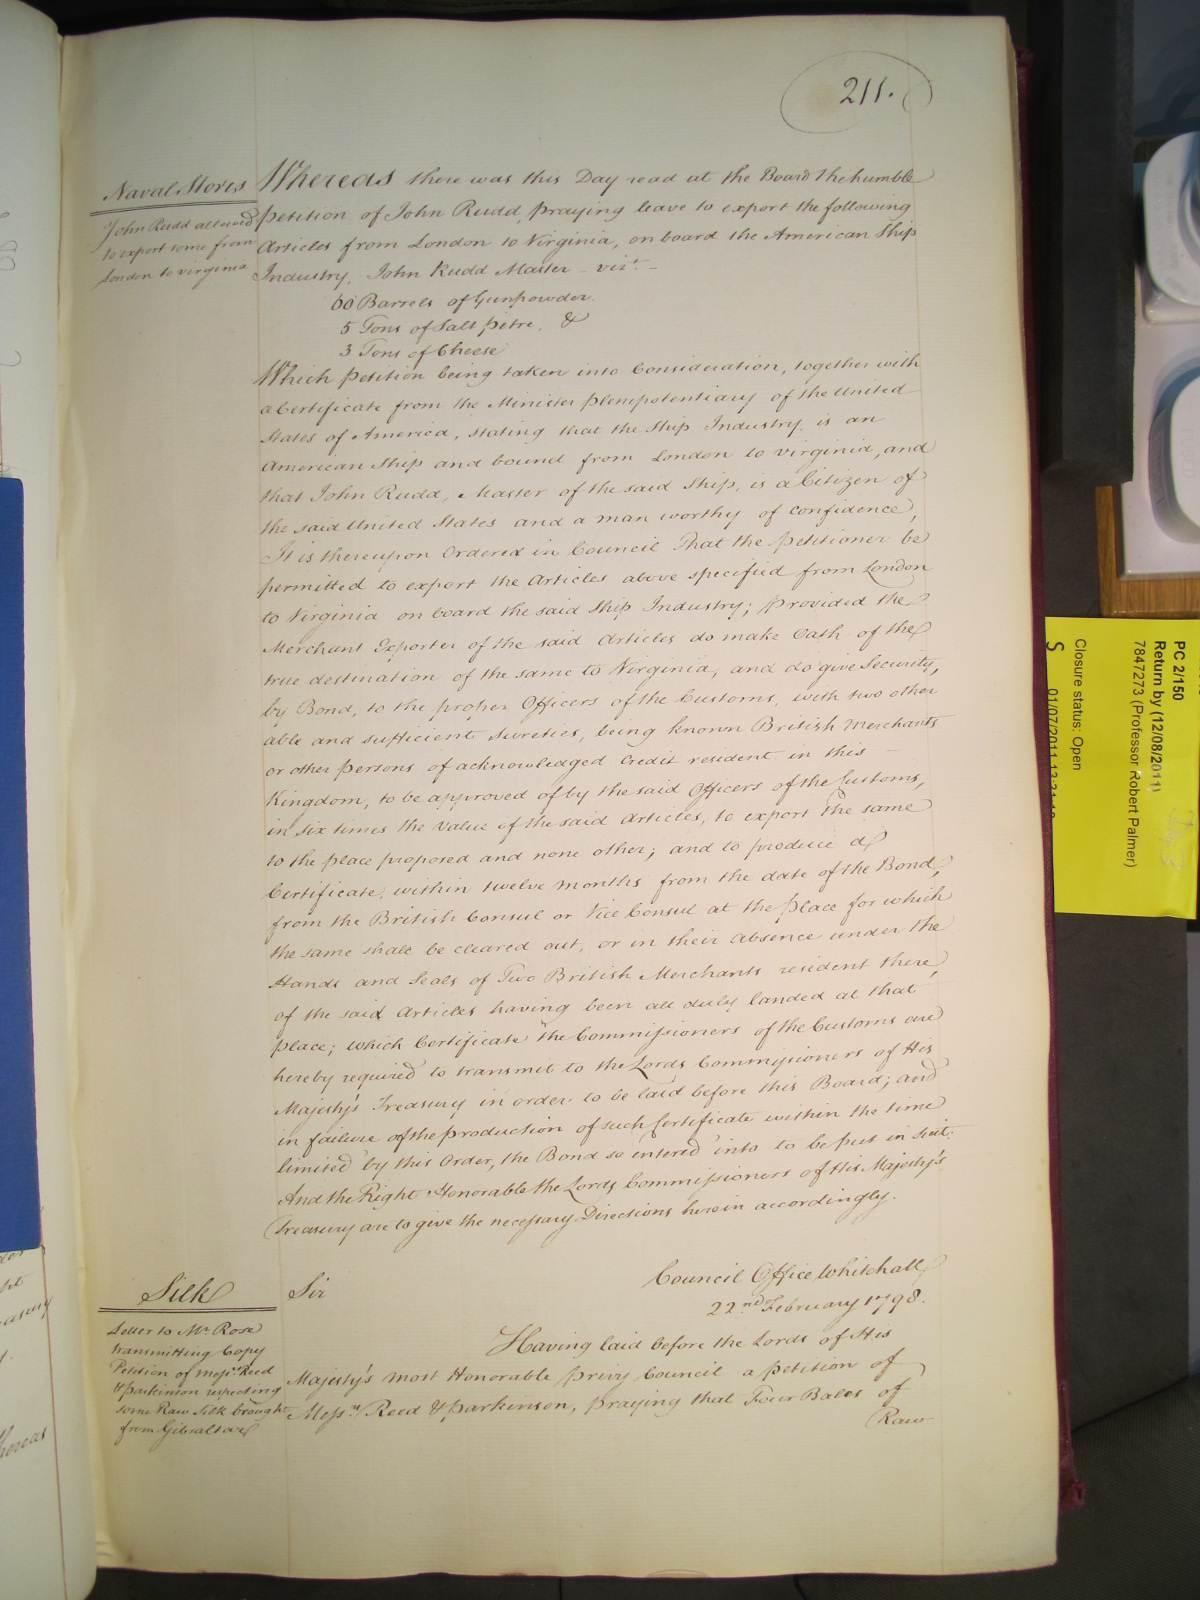 211.
Naval Stores
John Rudd allowed
to export some from
London to virginia
Whereas there was this Day read at the Board the humble
petition of John Rudd, praying leave to export the following
Articles from London to Virginia, on board the American Ship
Industry, John Rudd Master – vizt. –
60 Barrels of Gunpowder.
5 Tons of Salt petre, &
3 Tons of Cheese
Which petition being taken into Consideration, together with
a Certificate from the Minister plenipotentiary of the United
States of America, stating that the Ship Industry, is an
American Ship and bound from London to virginia, and
that John Rudd, Master of the said Ship, is a Citizen of
the said United States and a man worthy of confidence,
It is thereupon Ordered in Council That the petitioner be
permitted to export the Articles above specified from London
to Virginia on board the said Ship Industry; provided the
Merchant Exporter of the said Articles do make Oath of the
true destination of the same to Virginia, and do give Security,
by Bond, to the proper Officers of the Customs, with two other
able and sufficient Sureties, being known British Merchants
or other persons of acknowledged Credit resident in this
Kingdom, to be approved of by the said Officers of the Customs,
in six times the Value of the said Articles, to export the same
to the place proposed and none other; and to produce a
Certificate, within twelve months from the date of the Bond,
from the British Consul or Vice Consul at the place for which
the same shall be cleared out, or in their Absence under the
Hands and Seals of Two British Merchants resident there,
of the said Articles having been all duly landed at that
place; which Certificate the Commissioners of the Customs are
hereby required to transmit to the Lords Commissioners of His
Majesty's Treasury in order to be laid before this Board; and
in failure of the production of such Certificate within the time
limited by this Order, the Bond so entered into to be put in suit:
And the Right Honorable the Lords Commissioners of His Majesty's
Treasury are to give the necessary Directions herein accordingly.
Council Office, Whitehall,
22nd February 1798.
Silk
Letter to Mr. Rose
transmitting Copy
Petition of Messrs Reed
& parkinson respecting
some Raw Silk brought
from Gibraltar
Sir
Having laid before the Lords of His
Majesty's most Honorable privy Council a petition of
Messrs. Reed & parkinson, praying that Four Bales of
Raw
PC 2/150
Return by (12/08/2011)
7847273 (Professor Robert Palmer)
Closure status: Open
S
01/07/2011